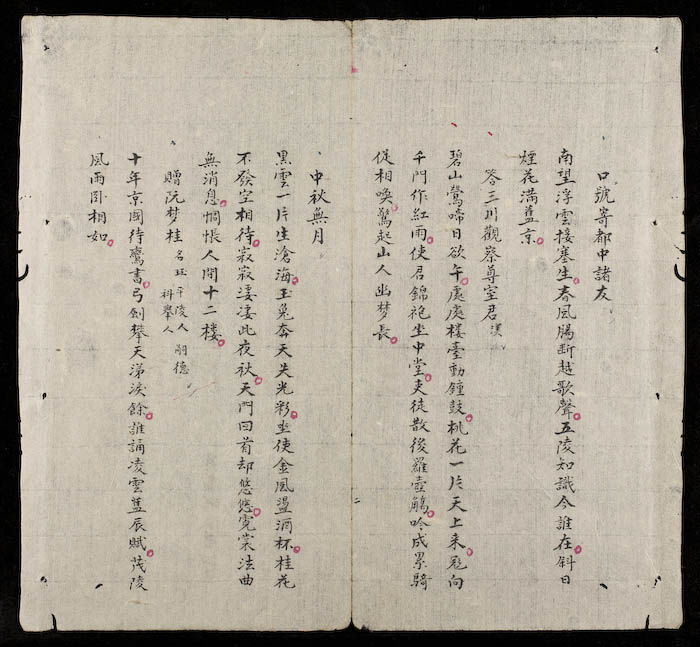 口號寄都中諸友
南望浮雲接塞生春風腸斷越歌聲五陵知識今誰在斜日
煙花滿蓋京
答三川觀察尊室君
碧山鶯啼日欲午處處楼臺動鍾鼓桃花一片天上来飛向
千門作紅雨使君錦袍坐中堂吏徒散後羅壺觴吟成累騎
促相喚驚起山人幽梦長
中秋無月
黑雲一片生滄海玉兔奔天失光彩坐使金風盪酒杯桂花
不發空相待寂寂凄凄此夜秋天門回首却悠悠霓裳法曲
無消息惆悵人間十二楼
贈阮梦桂 名 平陵人 嗣德 科舉人
十年京國待鶯書弓劍攀天涕淚餘誰誦凌雲蓋辰賦茂陵
風雨卧相如